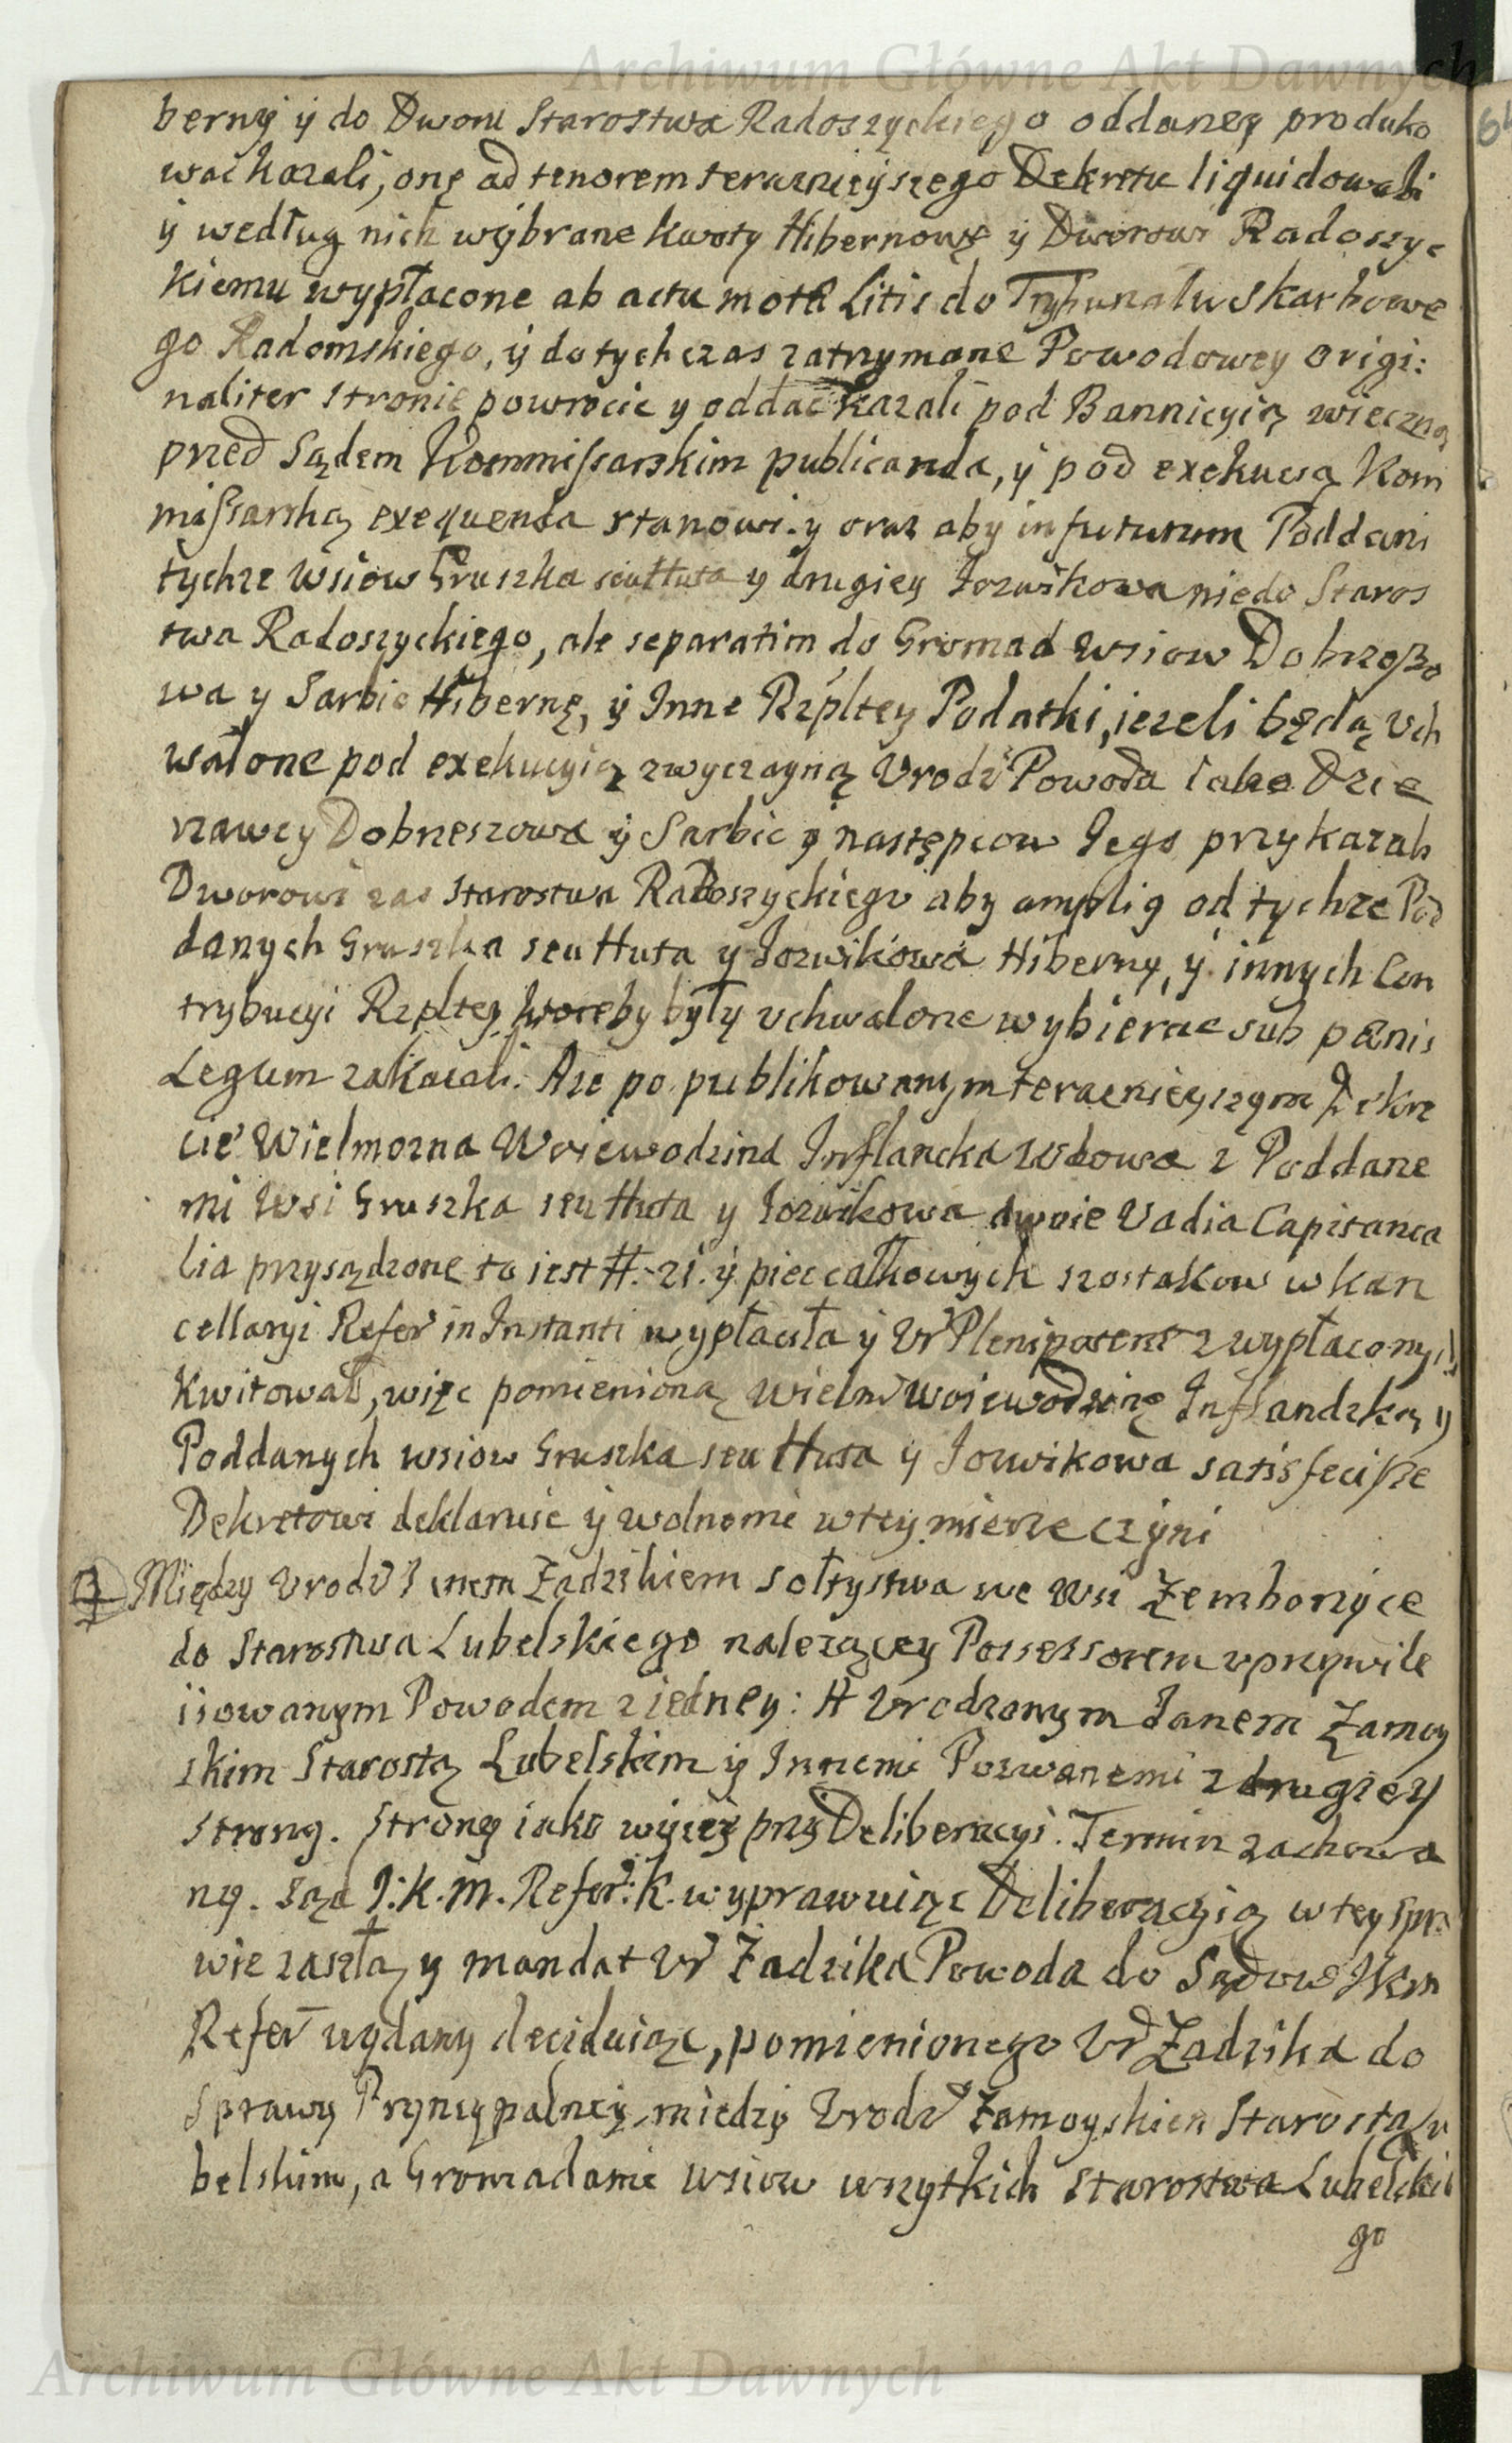 Archiwum Główne Akt Dawnych
berny ÿ do Dworu Starostwa Radoszyckiego oddaney produko
wać kazali, onę ad tenorem teraznieÿszego Dekretu liquidowali
ÿ według nich wÿbrane kwoty Hibernowe ÿ Dworowi Radoszyc
kiemu wypłacone ab actu motæ Litis do Trybunału Skarbowe
go Radomskiego, ÿ dotychczas zatrzymane Powodowey origi:
naliter stronie powrocic y oddać kazali pod Bannicyią wieczną
przed Sądem Kommissarskim publicanda, ÿ pod exekucyą Kom
missarską exequenda stanowi. y oraz aby in futurum Poddani
tychze wsiow Gruszka seu Huta y drugiey Jozwikowa nie do Staros
twa Radoszyckiego, ale separatim do Gromad wsiow Dobrzeszo
wa y Sarbic Hibernę, ÿ Inne Rzpltey Podatki, iezeli będą vch
walone pod exekucyią zwyczayną Vrodz Powoda iako Dzie
rzawcy Dobrzeszowa ÿ Sarbic ÿ następcow Jego przykazali
Dworowi zas Starostwa Radoszyckiego aby amplię od tychze Pod
danych Gruszka seu Huta y Jozwikowa Hiberny, ÿ innych Con
trybucyi Rzpltey ktoreby były vchwalone wybierac sub pænis
Legum zakazali. Aze po publikowanym teraznieyszym Dekre
cie Wielmozna Woiewodzina Inflancka wdowa z Poddane
mi Wsi Gruszka seu Huta y Jozwikowa dwoie Vadia Capitanea
lia przysądzone to iest H. 21. ÿ piec całkowych szostakow w kan
cellaryi Refer in Instanti wypłaciła ÿ Vr Plenipotent z wypłaconych
kwitował, więc pomienioną Wielm Woiewodzinę Inflandzką y
Poddanych wsiow Gruszka seu Huta y Jozwikowa satisfecisse
Dekretowi deklaruie ÿ wolnemi w tey mierze czÿni
Między Vrodz Janem Zadzikiem sołtystwa we Wsi Zemborzyce
do Starostwa Lubelskiego nalezącey Possessorem vprzywile
iiowanym Powodem z iedney: A Vrodzonym Janem Zamoy
skim Starostą Lubelskim ÿ Innemi Pozwanemi z drugiey
strony. Strony iako wÿzeÿ przy Deliberacyi. Termin zachowa
ny. Sąd J: K. M. Refer: K. wyprawuiąc Deliberacyią w tey spra
wie zaszłą y mandat Vr Zadzika Powoda do Sądow JKM
Refer wydany deciduiąc, pomienionego Vr Zadzika do
Sprawy Pryncypalneÿ między Vrodz Zamoyskiem Starostą Lu
belskim, a Gromadami wsiow wszytkich Starostwa Lubelskie
go
Archiwum Główne Akt Dawnych